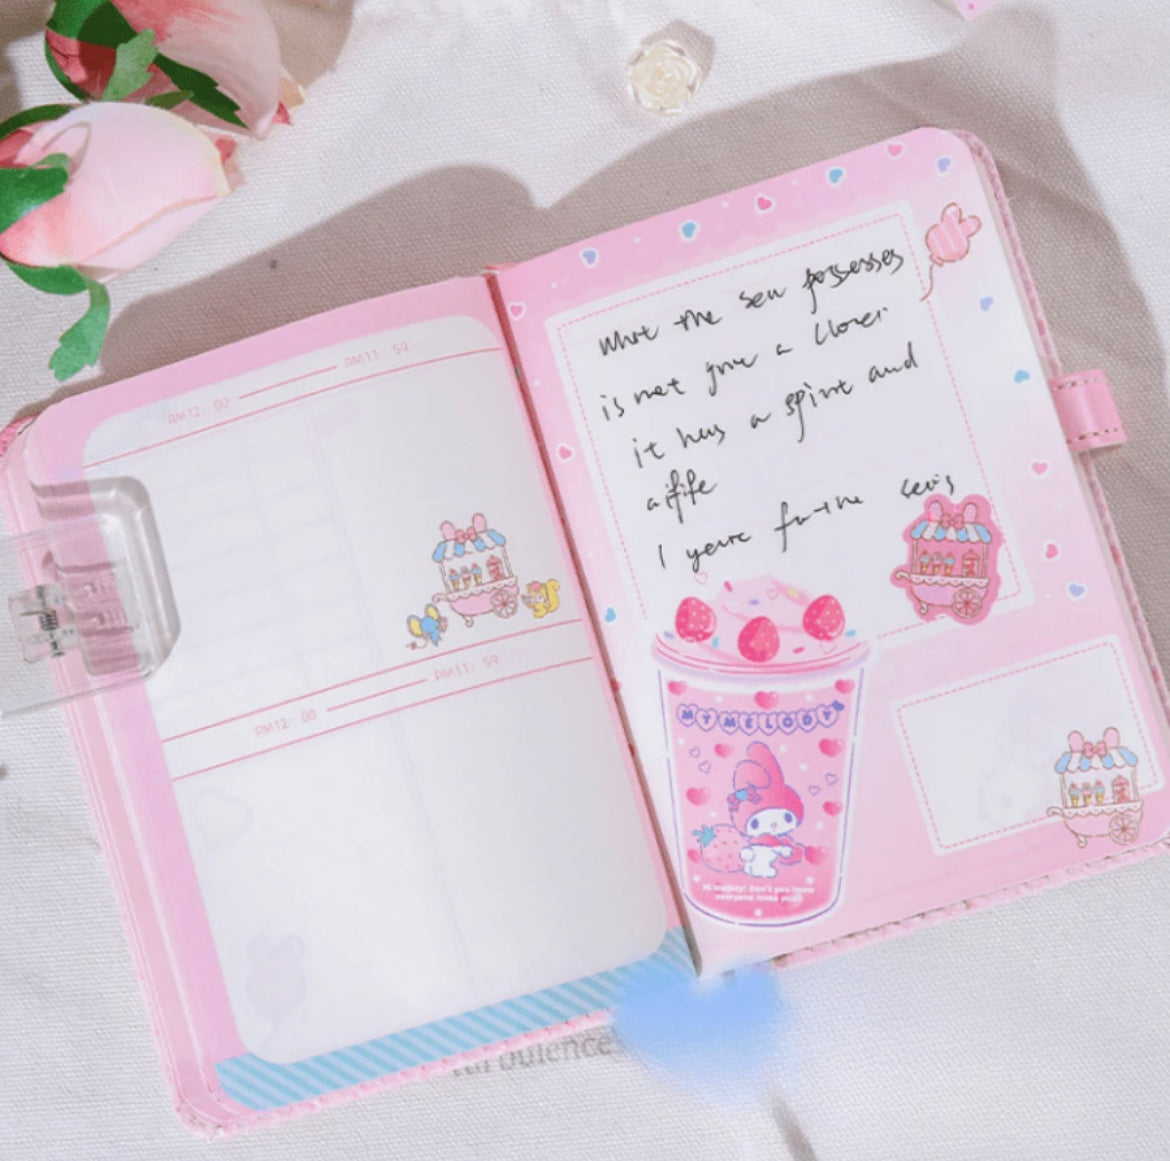 AM12: 00 AM11: 59
PM12: 00 PM11: 59
What the sea possesses
is not
it has a spirit and
a life
I
MY MELODY
Hi Melody! Don't you know
everyone loves you?
turbulence